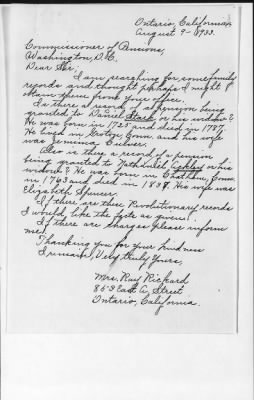 Ontario, California
August 9 - 1933.
Commissioner of Pensions,
Washington, D.C.
Dear Sir,
I am searching for some family
records and thought perhaps I might
obtain them from your office.
Is there a record of a pension being
granted to Daniel Stark or his widow?
He was born in 1721 and died in 1787.
He lived in Groton, Conn. and his wife
was Jemima Culver.
Also is there a record of a pension
being granted to Nathaniel Ackley or his
widow? He was born in Chatham, Conn.
in 1763 and died in 1839. His wife was
Elizabeth Spencer.
If there are these Revolutionary records
I would like the facts as given.
If there are charges please inform
me.
Thanking you for your kindness
I remain, Very truly yours,
Mrs. Ray Rickard
853 East A Street
Ontario, California.